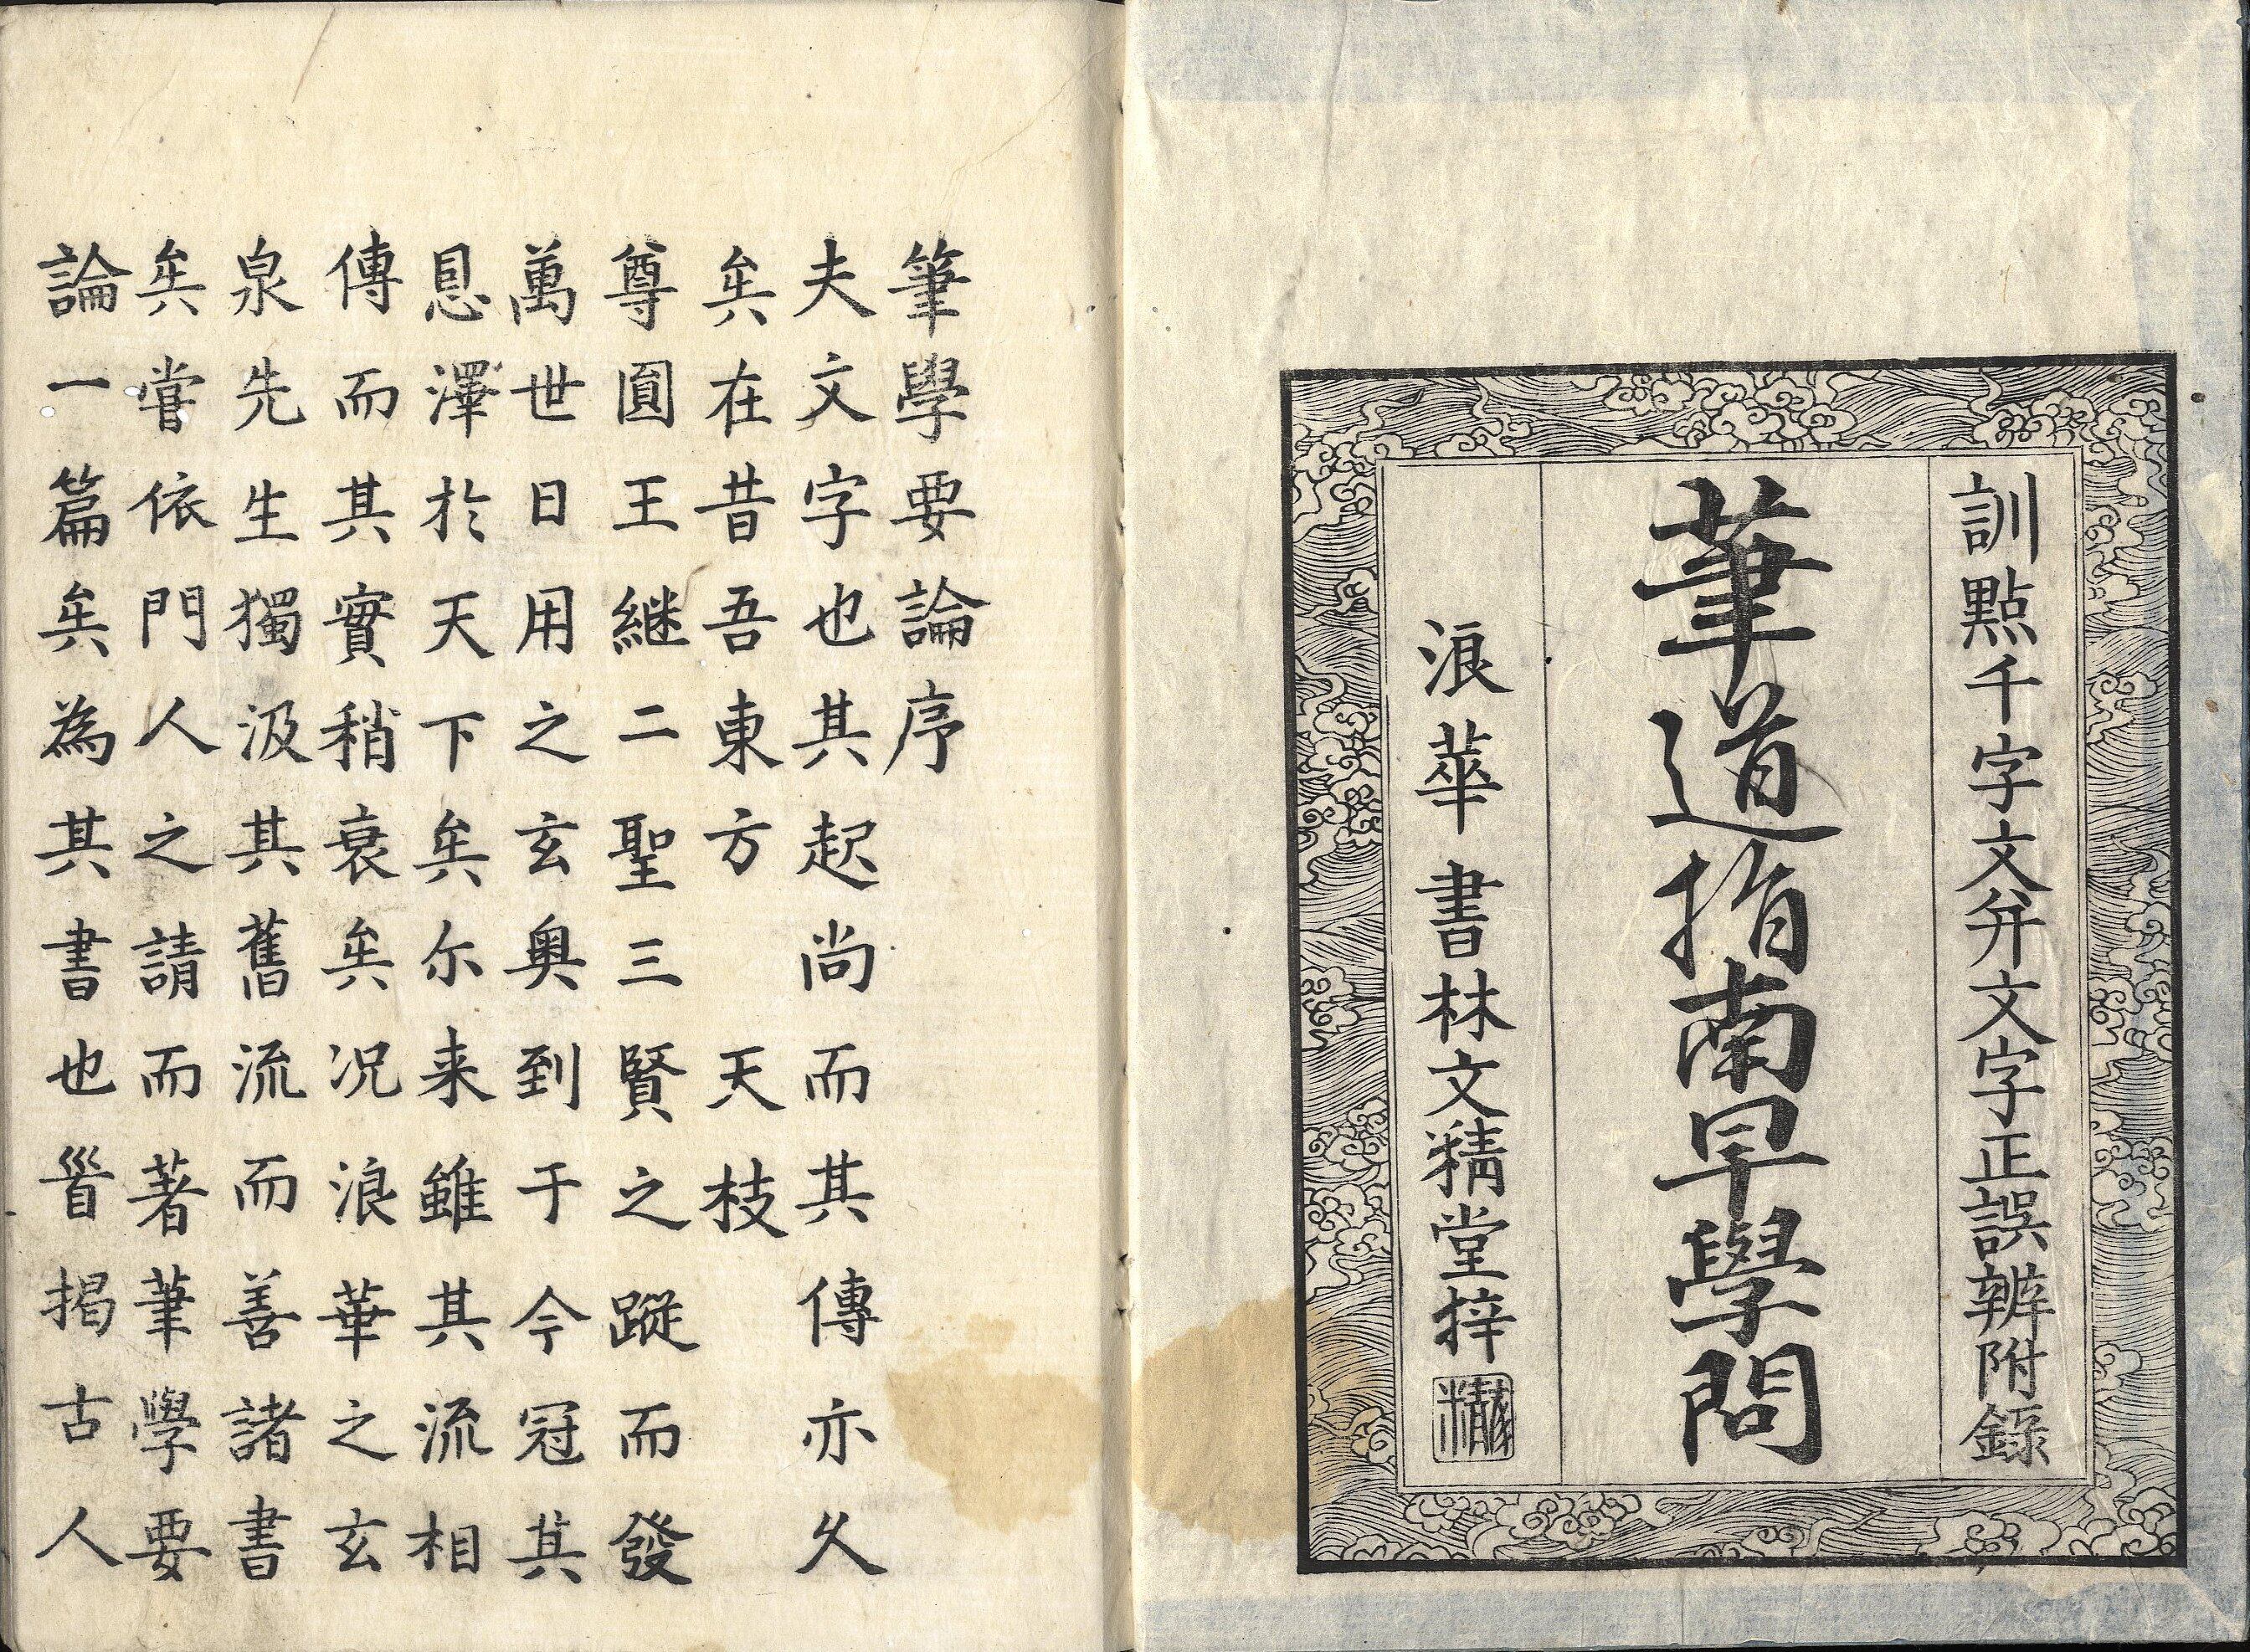 訓點千字文并文字正誤辨附錄
筆道指南早學問
浪華書林文精堂梓
筆學要論序
夫文字也其起尚而其傳亦久
矣在昔吾東方 天枝
尊圓王継二聖三賢之蹤而發
萬世日用之玄奥到于今冠其
恩澤於天下矣尓来雖其流相
傳而其實稍衰矣况浪華之玄
泉先生獨汲其舊流而善諸書
矣嘗依門人之請而著筆學要
論一篇矣為其書也首揭古人